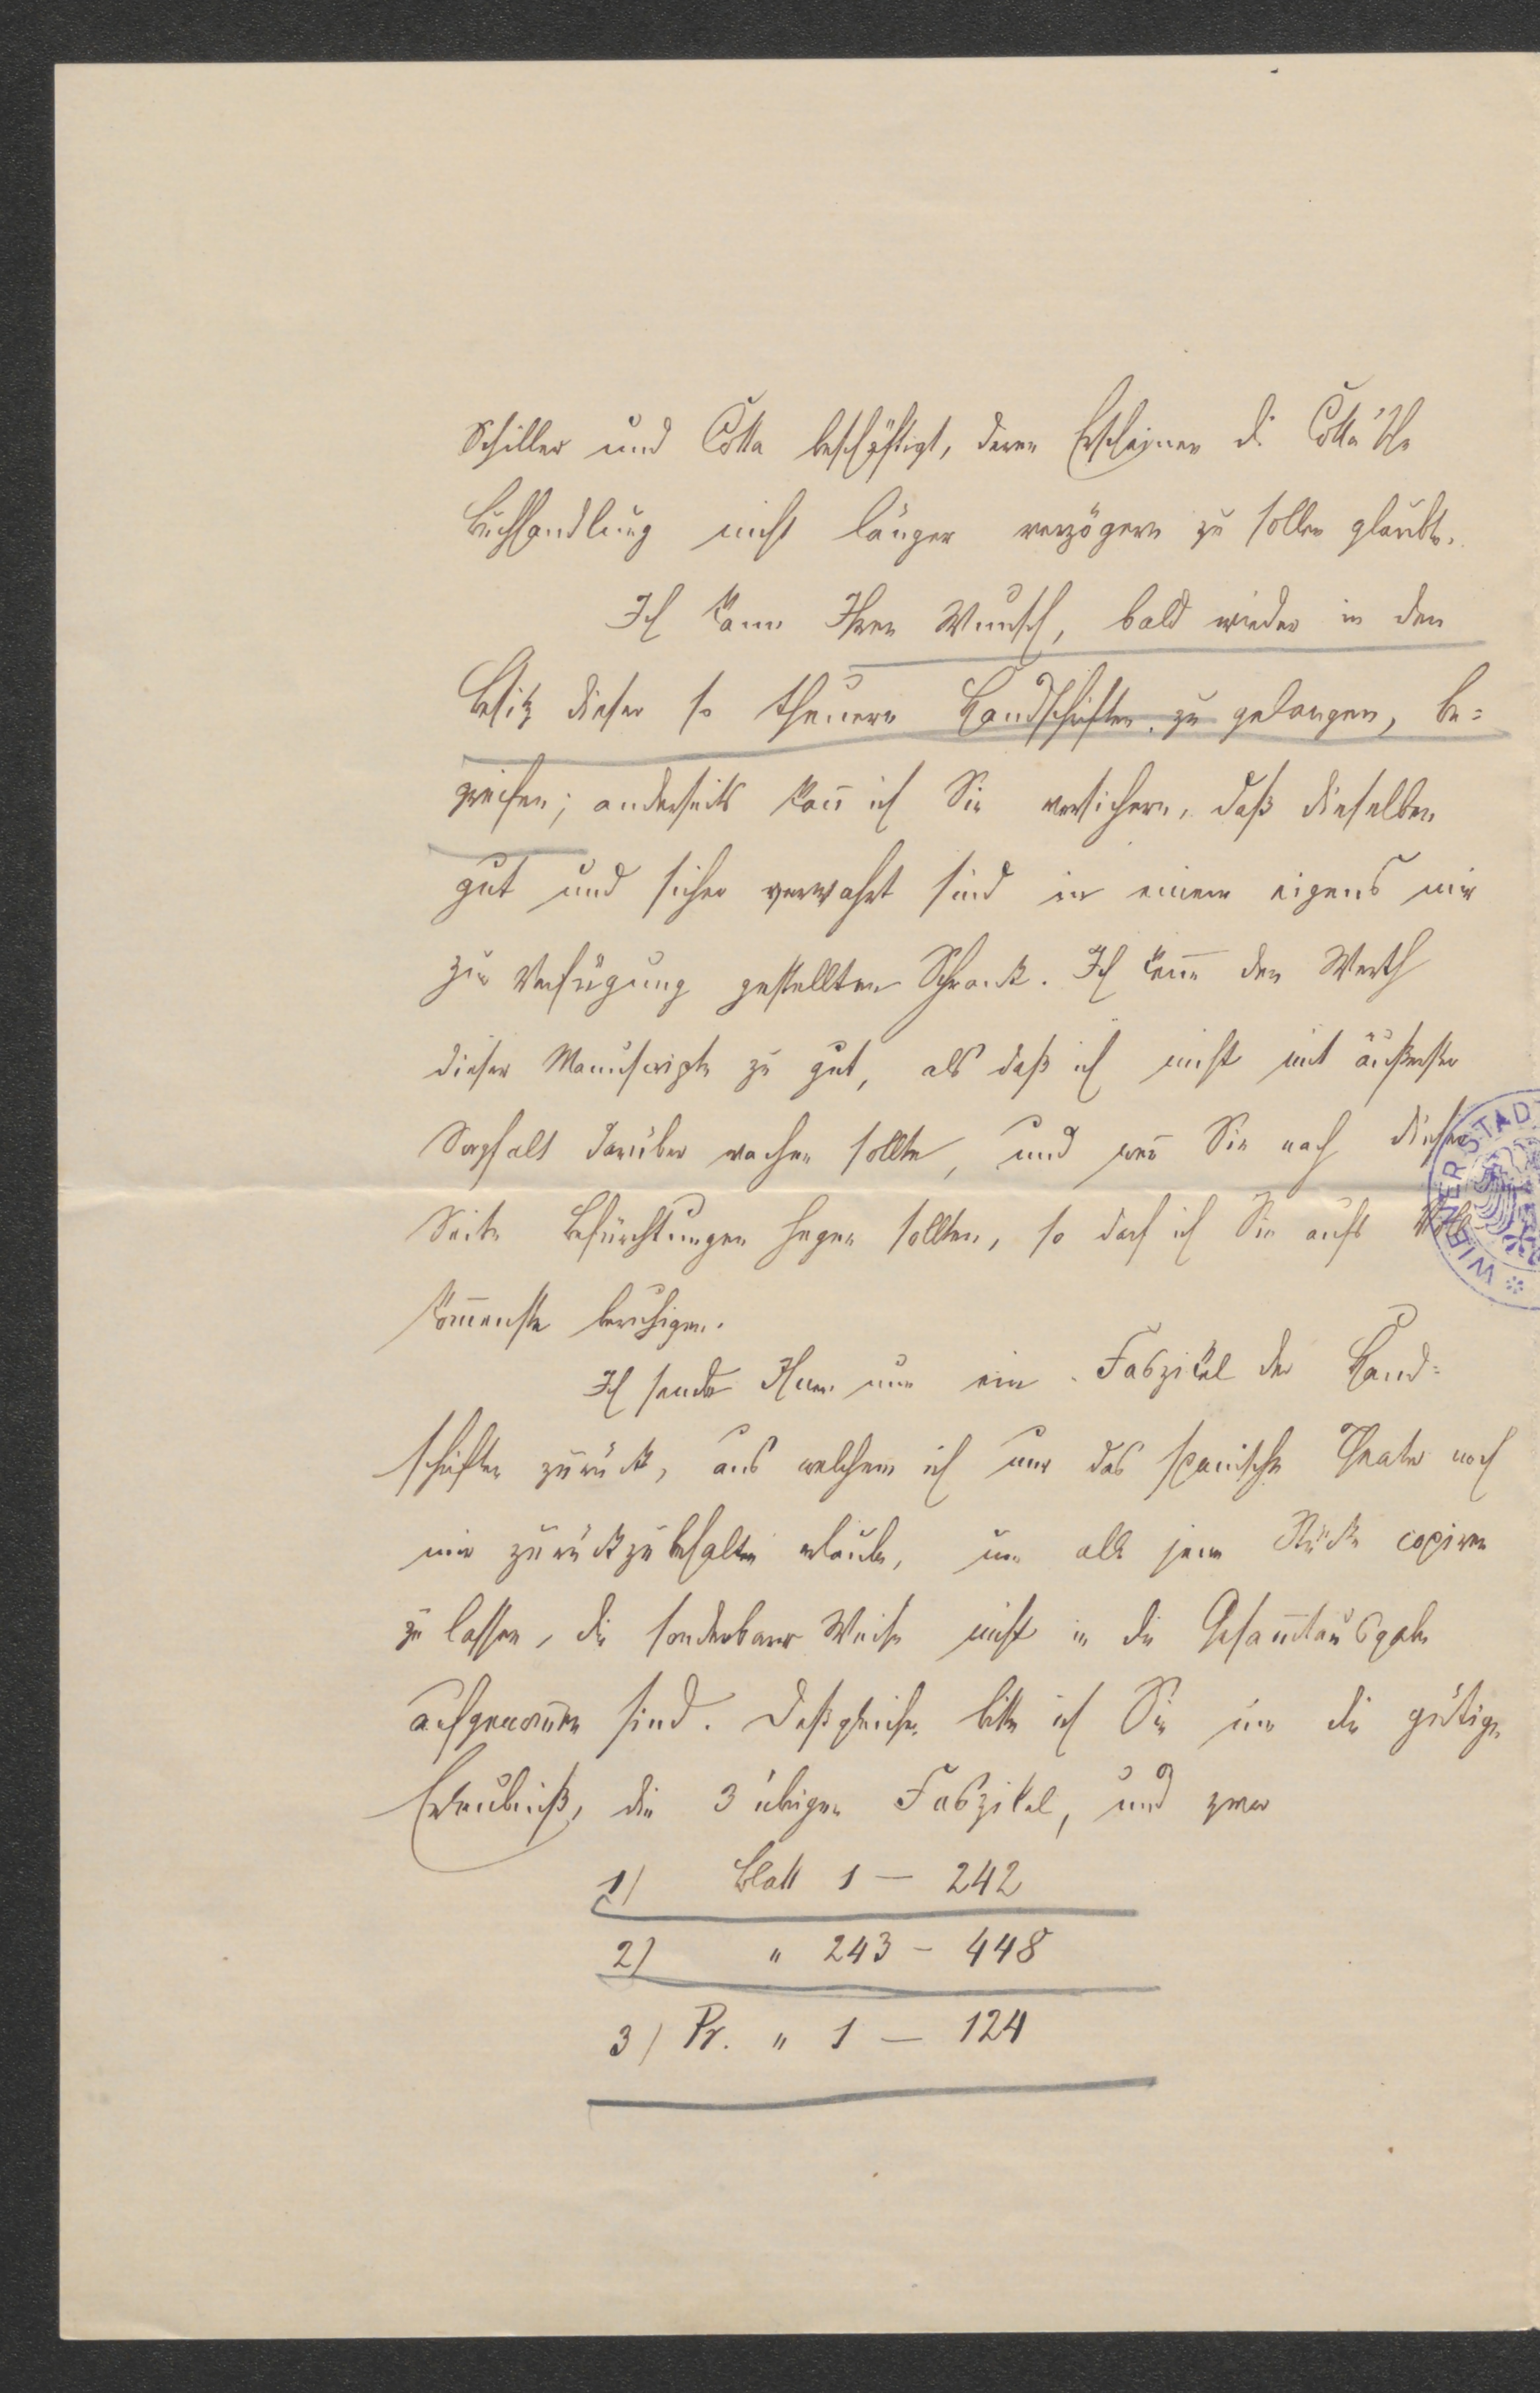 Schiller und Cotta beschäftigt, deren Erscheinen di Cotta'sche
Buchhandlung nicht länger verzögern zu sollen glaubte.
Ich kann Ihren Wunsch, bald wieder in den
Besitz dieser so theuern Handschriften zu gelangen, be=
greifen; anderseits kan̅ ich Sie versichern, daß dieselben
gut und sicher verwahrt sind in einem eigens mir
zur Verfügung gestellten Schrank. Ich ken̅e den Werth
dieser Manuscripte zu gut, als daß ich nicht mit äußerster
Sorgfalt darüber wachen sollte, und wen̅ Sie nach dieser
Seite Befürchtungen hegen sollten, so darf ich Sie aufs Voll
kom̅enste beruhigen.
Ich sende Ihnen nun ein Faszikel der Hand=
schriften zurück, aus welchem ich nur das spanische Theater noch
mir zurückzubehalten erlaube, um alle jene Stücke copiren
zu lassen, die sonderbarer Weise nicht in die Gesam̅tausgabe
aufgenom̅en sind. Desgleichen bitte ich Sie um die gütige
Erlaubniß, die 3 übrigen Faszikel, und zwar
1) Blatt 1 — 242
2) " 243 – 448
3) Pr. " 1 — 124
WIENER STAD